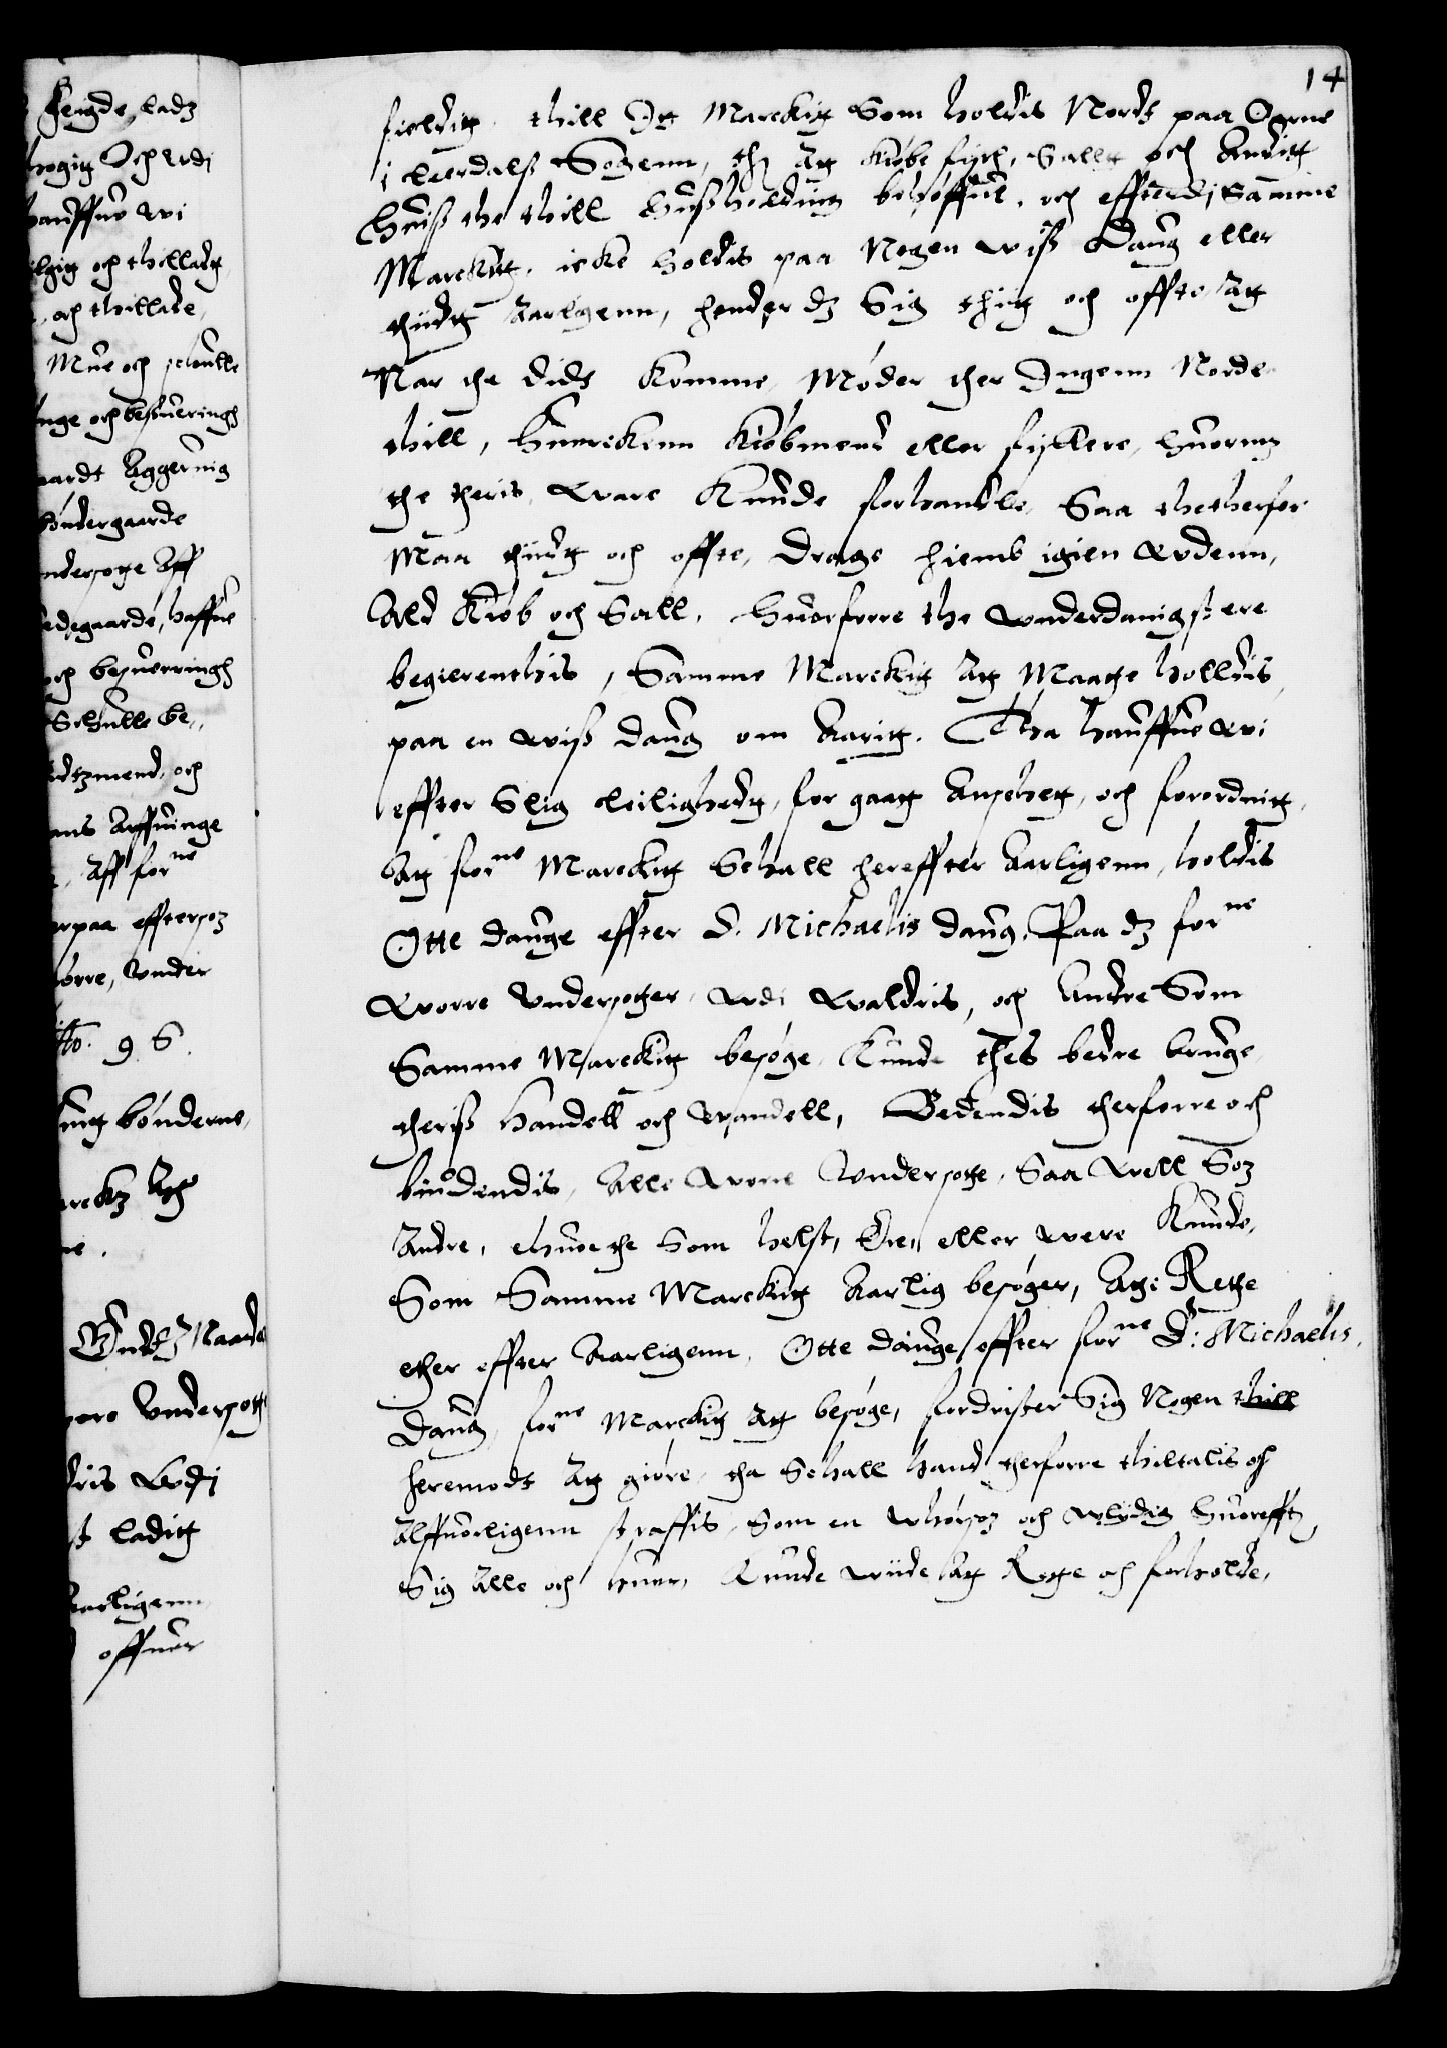 14
fielditt thill Itt Marckitt Som holdis Nordz paa Ørne
i Leerdalß Sogenn, thz att kiøbe fisch, Sallt och Anditt
huiß the thill hußholding behøffue, och effterdj Samme
Marckitt icke holdis paa Nogen wiß Daug eller
thiidt Aarligenn, hender dz Sig thitt och offte, Att
Nar the didt komme, Møder ther Ingenn Norden
thill, huercken Kiøbmend eller fiskere, huormz
the theris Ware kunde forhandle, Saa the therfor
Maa thiidt och offte, drage hiemb igien vdenn,
Ald Kiøb och Sall, huorforre the vnderdanigst ere
begierenthis, Samme Marckit att Maatte holldis
paa en wiß daug om Aaritt. Tha hauffue wi
effter Slig Leilighedt, for gaatt Anseheet, och forordnit,
Att forne Marckitt Schall hereffter Aarligenn, holdis
Otte dauge effter S. Michaelis daug, Paa dz forne
Worre Vndersotter vdi Waldris, och Andre Som
Samme Marckitt besøge, Kunde thes bedre bruge
theriß Handell och Wandell, Bedendis therforre och
biudendis, Alle Worre Vndersotte, Saa well Som
Andre, ehuo the Som helst, Ere, eller were kunde,
Som Samme Marckitt Aarlig besøger, Att i Rette
ether effter Aarligenn, Otte dauge effter forne S: Michaelis
Daug, forne Marckit att besøge, fordrister Sig Nogen thill
heremodt att giøre, tha Schall hand therforre thiltalis och
Alffuorligenn straffis, Som en whørsom och wlydig, huoreffter
Sig Alle och huer, kunde wiide Att Rette och forholde,
feigde, ladz
hogig Och Vdi
hauffue wi
och thilladt
och thillade,
Mue och schulle
nge och besuering
aardt Aggernig
bøndergaarde
ndersotte Aff
edegaarde, haffue
och besuerringh
Schulle be,,
dtzmend, och
ans Arffuinge
Aff forne
rpaa effterson
børre, Vnder
Ao. 96.
bønderne,
Gudtz Naade
Vndersotte
dris Vdj
st ladit
Aarligenn
offuer